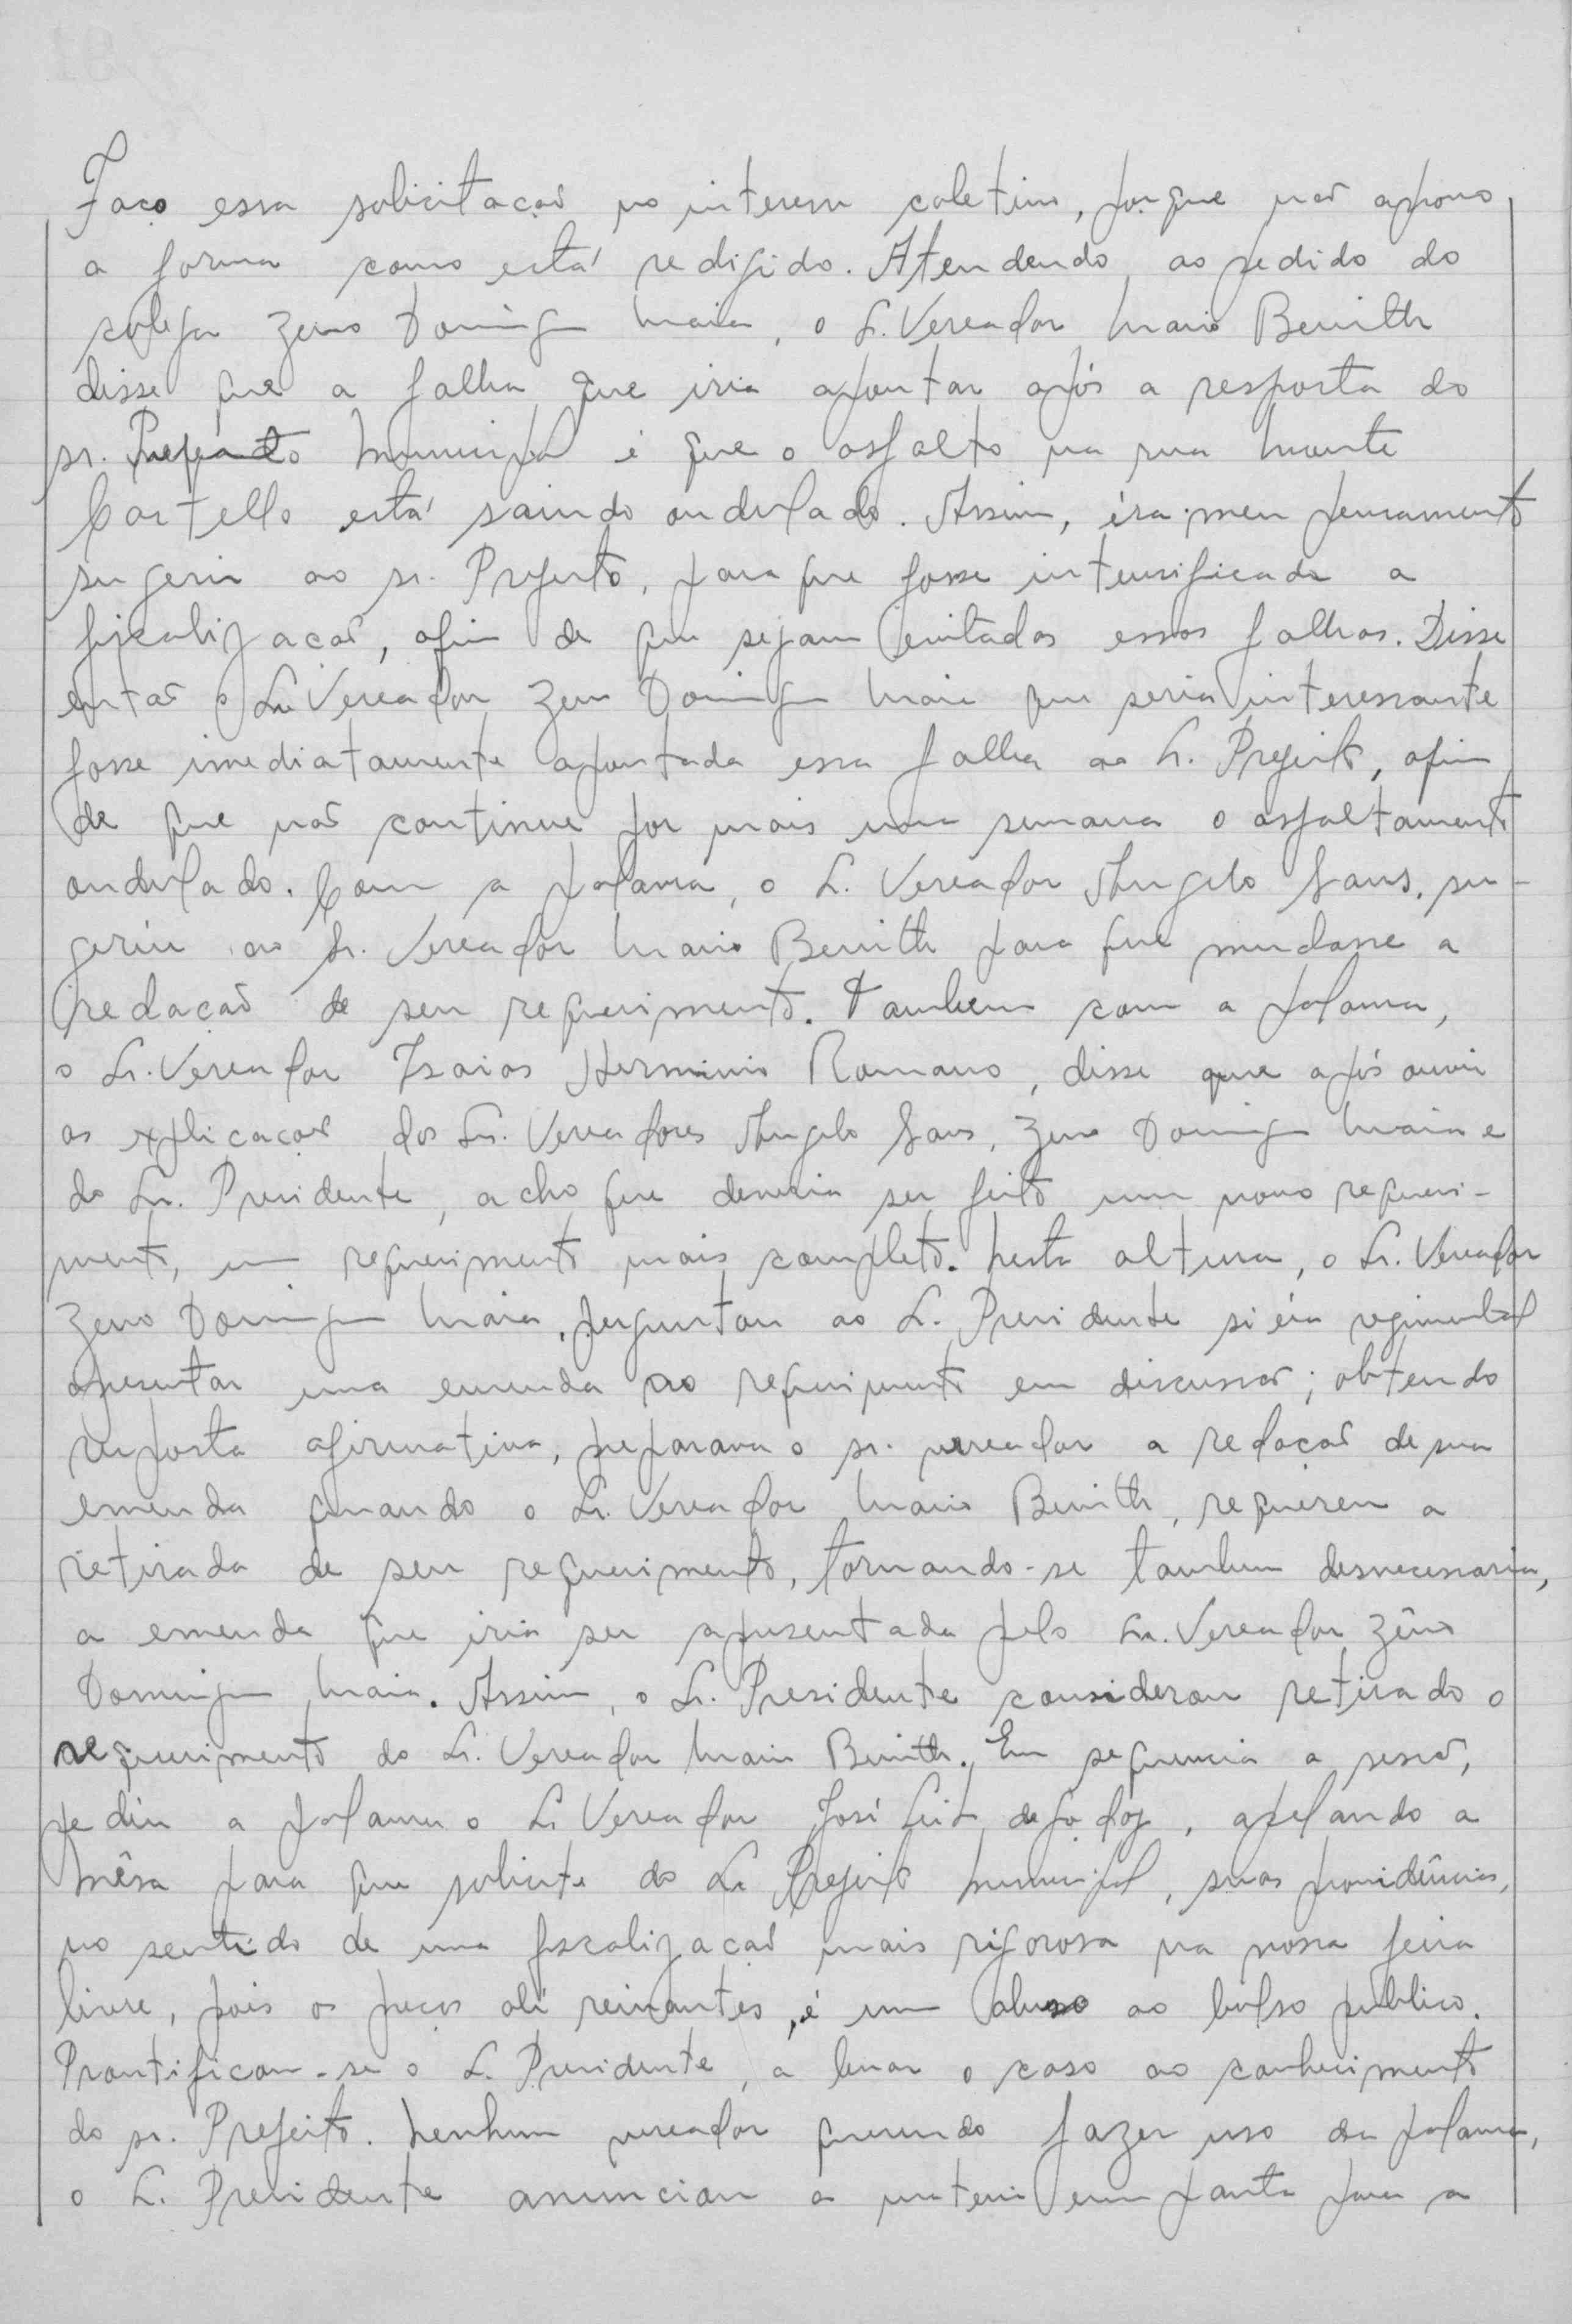 Faço essa solicitação no interesse coletivo, porque não aprovo
a forma como está redigido. Atendendo ao pedido do
colega Zeno Domingues Maia, o Sr. Vereador Mario Benith
disse que a falha que iria apontar após a resposta do
sr. Prefeito Municipal é que o asfalto na rua Monte
Castello está saindo ondulado. Assim, éra meu pensamento
sugerir ao sr. Prefeito, para que fosse intensificada a
fiscalização, afim de que sejam evitadas essas falhas. Disse
então o Sr. Vereador Zeno Domingues Maia que seria interessante
fosse imediatamente apontada essa falha ao Sr. Prefeito, afim
de que não continue por mais uma semana o asfaltamento
ondulado. Com a palavra, o Sr. Vereador Angelo Sans, su-
geriu ao Sr. Vereador Mario Benith para que mudasse a
redação de seu requerimento. Tambem com a palavra,
o Sr. Vereador Isaias Herminio Romano, disse que após ouvir
as explicações dos Srs. Vereadores Angelo Sans, Zeno Domingues Maia e
do Snr. Presidente, acho que deveria ser feito um novo requeri-
mento, um requerimento mais completo. Nesta altura, o Sr. Vereador
Zeno Domingues Maia, perguntou ao Sr. Presidente si éra regimental
apresentar uma emenda ao requerimento em discussão; obtendo
resposta afirmativa, preparava o sr. vereador a redação de sua
emenda quando o Sr. Vereador Mario Benith, requereu a
retirada de seu requerimento, tornando-se tambem desnecessaria,
a emenda que iria ser apresentada pelo Sr. Vereador Zêno
Domingues Maia. Assim, o Sr. Presidente considerou retirado o
requerimento do Sr. Vereador Mario Benith. Em sequencia a sessão,
pediu a palavra o Sr. Vereador José Leite de Godoy, apelando a
Mêsa para que solicite do Sr. Prefeito Municipal, suas providências,
no sentido de uma fiscalização mais rigorosa na nossa feira
livre, pois os preços ali reinantes, é um abuso ao bolso público.
Prontificou-se o Sr. Presidente, a levar o caso ao conhecimento
do sr. Prefeito. Nenhum vereador querendo fazer uso da palavra,
o Sr. Presidente anunciou a materia em pauta para a